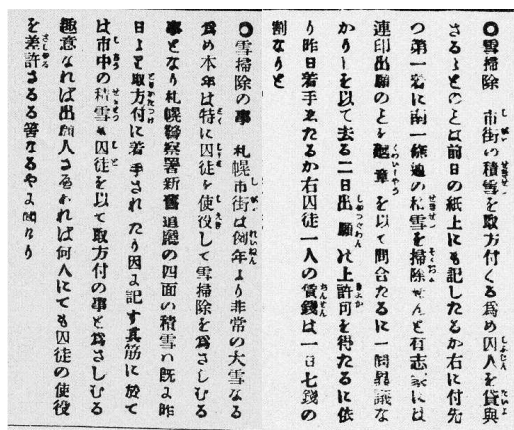 〇雪掃除　市街の積雪を取方付くる爲め囚人を貸與
さるゝとのことは前日の紙上にも記したるか右に付先
つ第一着に南一條通の積雪を掃除せんと有志家には
連印出願のことを廻章を以て問合たるに一同異議な
かりしを以て去る二日出願の上許可を得たるに依
り昨日着手したるか右囚徒一人の賃錢は一日七錢の
割なりと
〇雪掃除の事　札幌市街は例年より非常の大雪なる
爲め本年は特に囚徒を使役して雪掃除を爲さしむる
事となり札幌警察署新舊の四面の積雪ハ既に昨
日より取方付に着手されたり因に記す其筋に於て
は市中の積雪も囚徒を以て取方付の事を爲さしむる
趣意なれば出願人さゑあれば何人にても囚徒の使役
を差許さるゝ筈なるやに聞けり